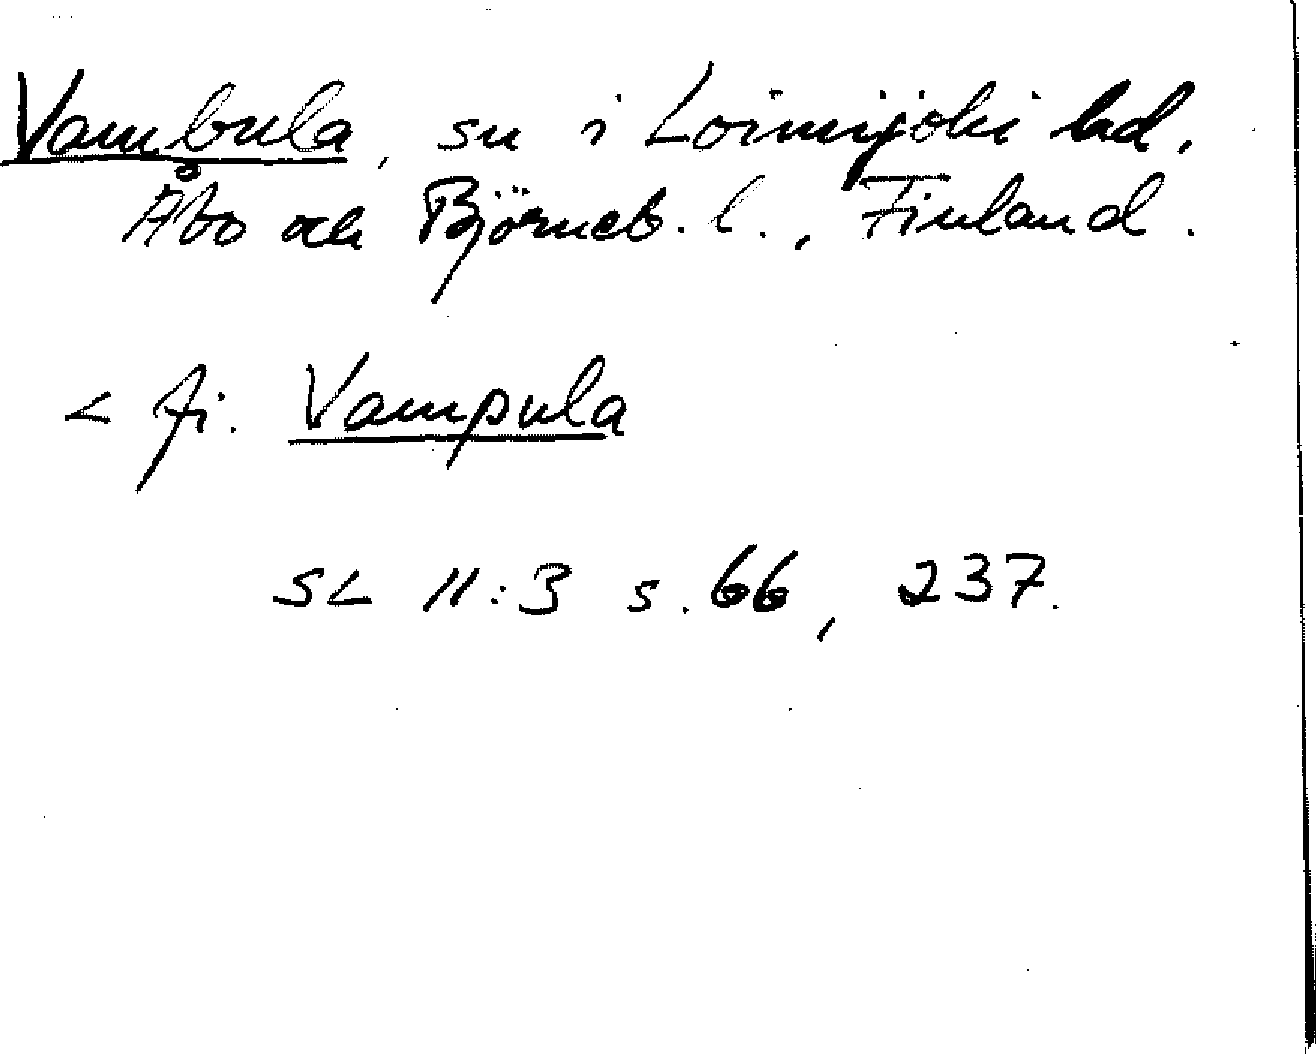 Vambula, sn i Loimijoki hd,
Åbo och Björneb. l., Finland.
< fi. Vampula
SL II:3 s. 66, 237.